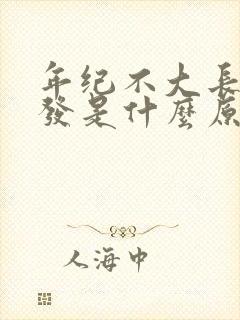 年纪不大長
發是什麼原
人海中